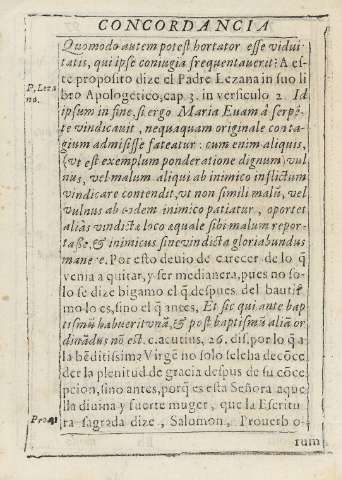 CONCORDANCIA
Quomodo autem potest hortator esse vidui
tatis, qui ipse coniugia frequentauerit: A es-
te proposito dize el Padre Lezana in suo li
P, Leza
no.
bro Apologetico, cap. 3. in versiculo 2. Id
ipsum in fine, si ergo Maria Euam à serpē-
te vindicauit, nequaquam originale conta-
gium admisisse fateatur: cum enim aliquis,
(vt est exemplum ponderatione dignum) vul
nus, vel malum aliqui ab inimico inflictum
vindicare contendit, vt non simili malū, vel
vulnus ab eodem inimico patiatur, oportet
aliàs vindictæ loco æquale sibi malum repor-
tasse, & inimicus sine vindicta gloriabundus
mane e. Por esto deuio de carecer de lo q̄
venia a quitar, y ser medianera, pues no so-
lo se dize bigamo el q̄ despues del bautis-
mo lo es, sino el q̄ ances, Et sic qui ante bap
tismū habuerit vnā, & post baptismū aliā or
dinādus nō est. c. acutius, 26. dis, por lo q̄ a
la bēditissima Virgē no solo se le ha de cōce
der la plenitud de gracia despus de su cōce
pcion, sino antes, porq̄ es esta Señora aque
lla diuina y fuerte muger, que la Escritu
Pro. 31
ra sagrada dize, Salomon, Prouerb o-
rum